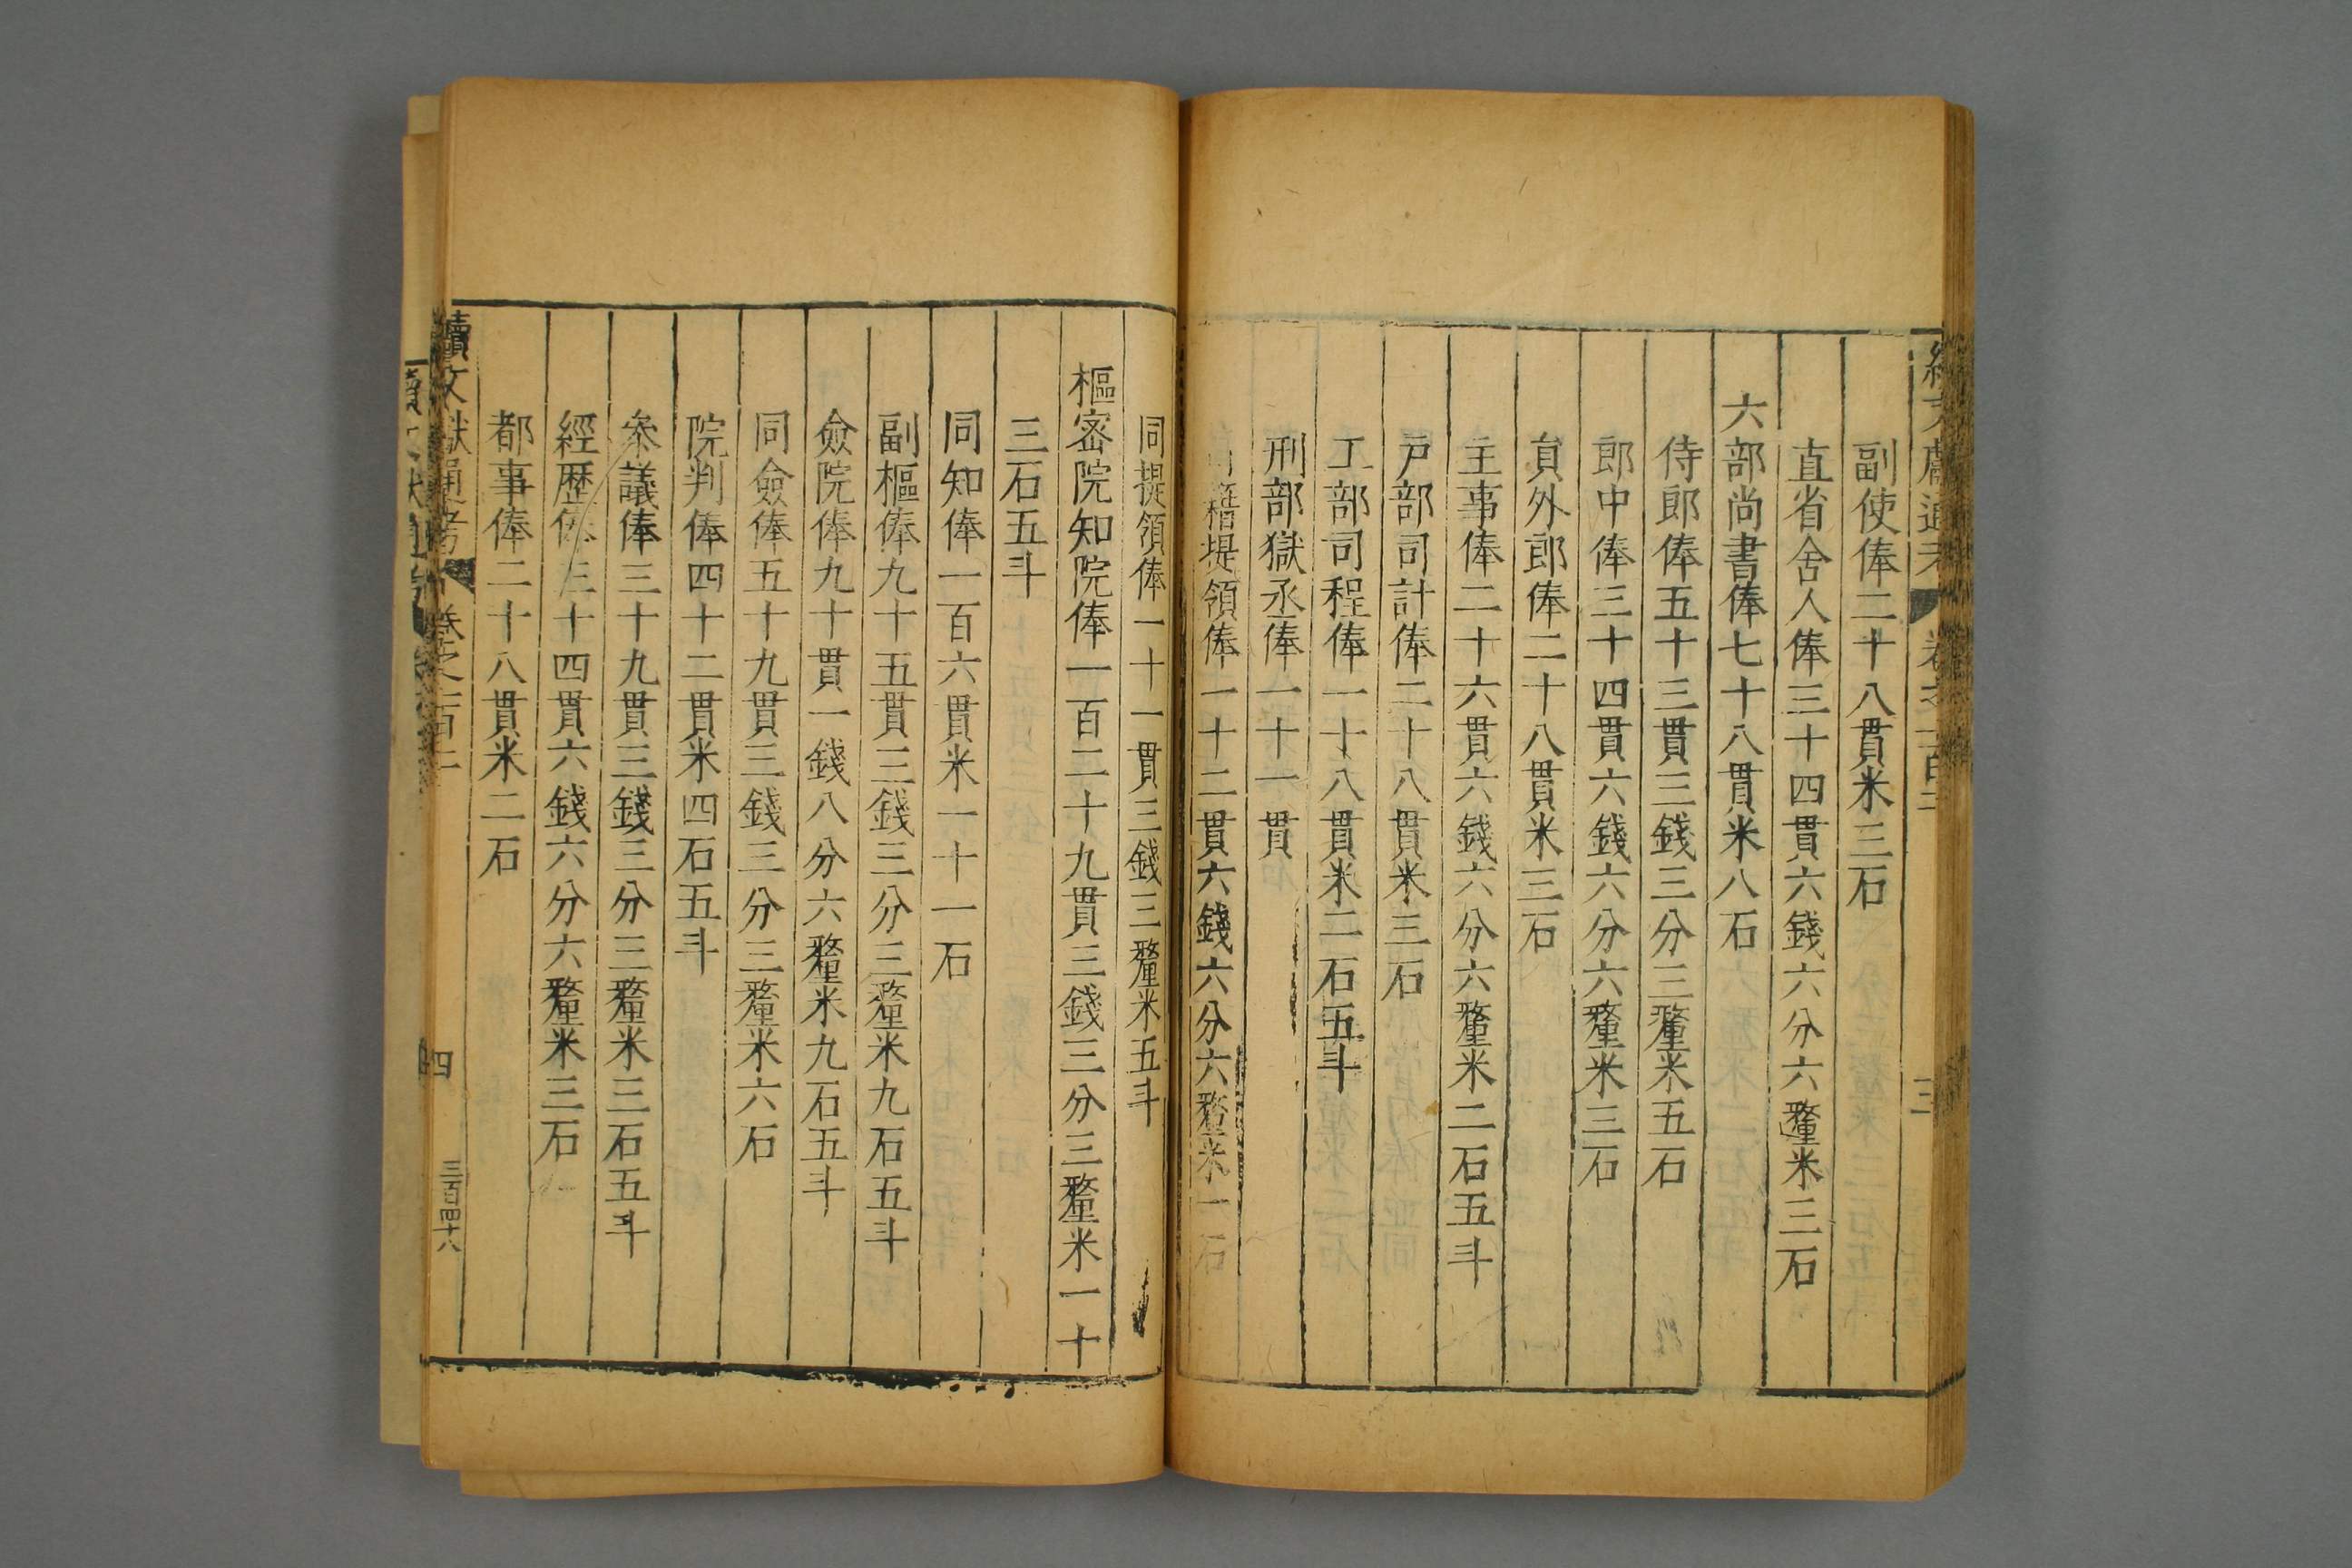 續文獻通考 卷之一百二 三
副使俸二十八貫米三石
直省舍人俸三十四貫六錢六分六釐米三石
六部尚書俸七十八貫米八石
侍郎俸五十三貫三錢三分三釐米五石
郎中俸三十四貫六錢六分六釐米三石
貟外郎俸二十八貫米三石
主事俸二十六貫六錢六分六釐米二石五斗
戸部司計俸二十八貫米三石
工部司程俸一十八貫米二石五斗
刑部獄丞俸一十一貫
籍堤領俸一十二貫六錢六分六釐米一石
同提領俸一十一貫三錢三釐米五斗
樞密院知院俸一百二十九貫三錢三分三釐米一十
三石五斗
同知俸一百六貫米一十一石
副樞俸九十五貫三錢三分三釐米九石五斗
僉院俸九十貫一錢八分六釐米九石五斗
同僉俸五十九貫三錢三分三釐米六石
院判俸四十二貫米四石五斗
叅議俸三十九貫三錢三分三釐米三石五斗
經歷俸三十四貫六錢六分六釐米三石
都事俸二十八貫米二石
續文獻通考 卷之一百二 四 三百四十八